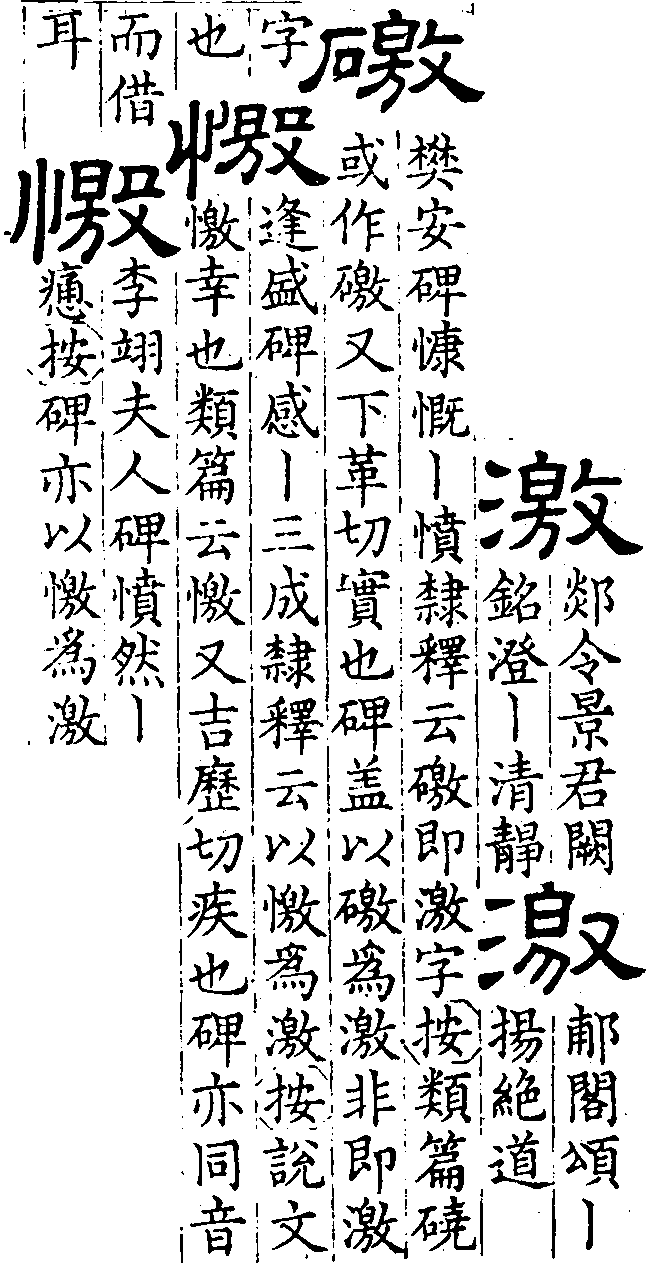 激
郯令景君闕
銘澄丨清靜
激
郙閣頌丨
揚絶道
礉
樊安碑慷慨丨憤隸釋云礉即激字按類篇磽
或作礉又下革切實也碑盖以礉爲激非即激
字
也
憿
逢盛碑感丨三成隸釋云以憿爲激按說文
憿幸也類篇云憿又吉歷切疾也碑亦同音
而借
耳
憿
李翊夫人碑憤然丨
按碑亦以憿爲激